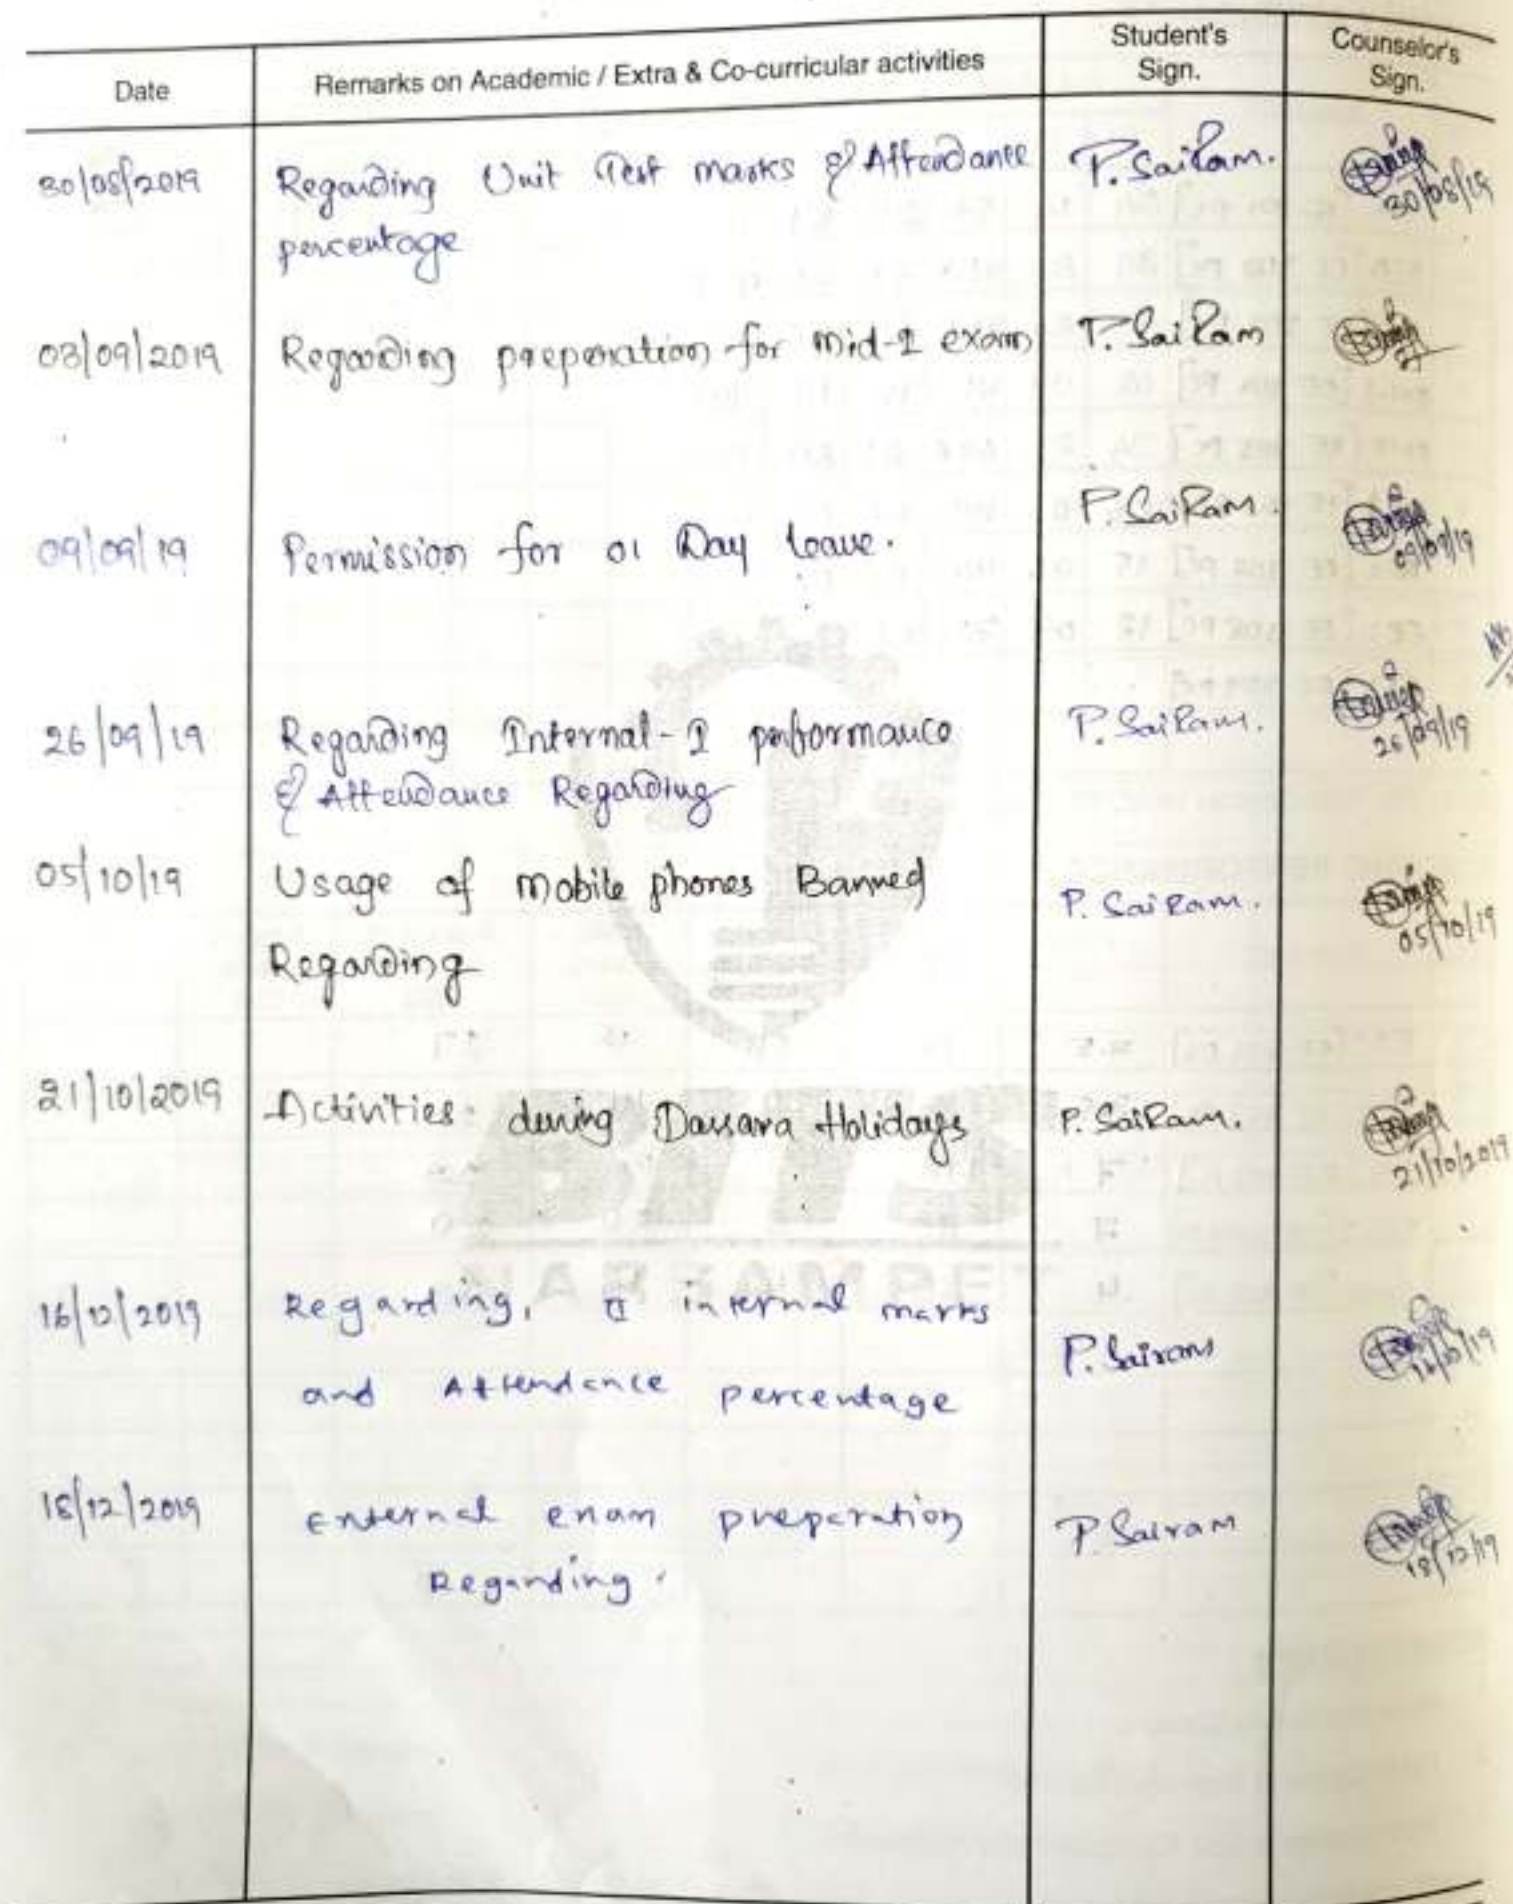 Date Remarks on Academic / Extra & Co-curricular activities Student's Sign. Counselor's Sign.
30/08/2019 Regarding Unit Test marks & Attendance P. SaiRam. 30/08/19
percentage
03/09/2019 Regarding preperation for mid-I exam P. SaiRam
09/09/19 Permission for 01 Day leave. P. SaiRam. 09/09/19
26/09/19 Regarding Internal-I performance P. SaiRam. 26/09/19
& Attendance Regarding
05/10/19 Usage of mobile phones Banned P. SaiRam. 05/10/19
Regarding
21/10/2019 Activities during Dassara Holidays P. SaiRam. 21/10/2019
16/12/2019 Regarding, II internal marks P. Sairam
and Attendence percentage
18/12/2019 External exam preparation P. Sairam 18/12/19
Regarding.